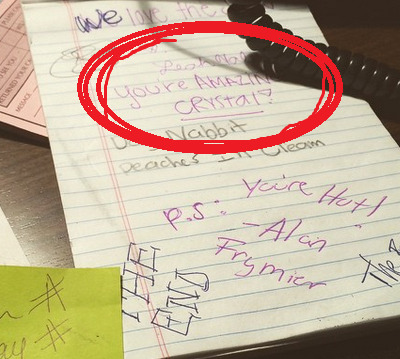 we love the
you're AMAZIN
CRYSTAL!
Nabbit
peaches In Cream
P.S: You're Hot!
-Alan
Frymier
THE
END
#
ay #